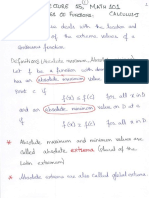 LECTURE 15, MATH 101
of Functions. CALCULUS I
deals with the function and
of the extreme values of a
continuous function.
Definitions (Absolute maximum, Absolute
Let f be a function with domain
has an absolute maximum value on
f(x) ≤ f(c) for all x in D
and an absolute minimum value on D at
f(x) ≥ f(c) for all x in D
* Absolute maximum and minimum values are
called absolute extrema (plural of the
Latin extremum)
* Absolute extrema are also called global extrema.